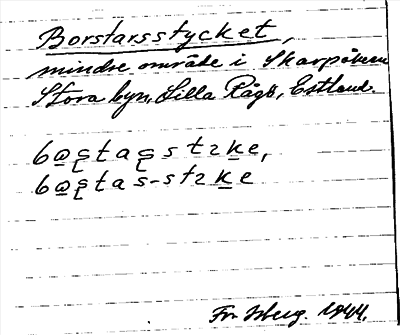 Borstarsstycket,
mindre område i Skarpåkern
Stora byn, Lilla Rågö, Estland.
bo̲ʂtaʂstɩk̲e,
bo̲ʂtas-stɩk̲e
Fr Isberg. 1944.